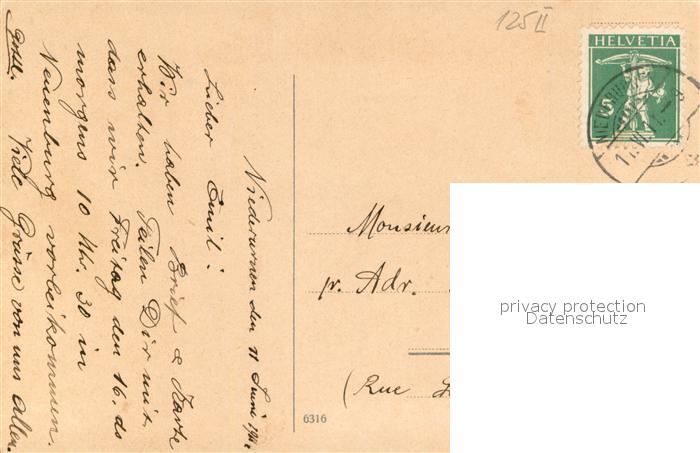 125 II
HELVETIA
5
Niederurnen den 11 Juni
Lieber Emil!
Wir haben Brief & Karte
erhalten. Teilen Dir mit,
dass wir Freitag den 16. ds
morgens 10 Uhr. 30 in
Neuenburg vorbeikommen.
Viele Grüsse von uns allen.
Monsieur
pr. Adr.
(Rue
6316
privacy protection
Datenschutz